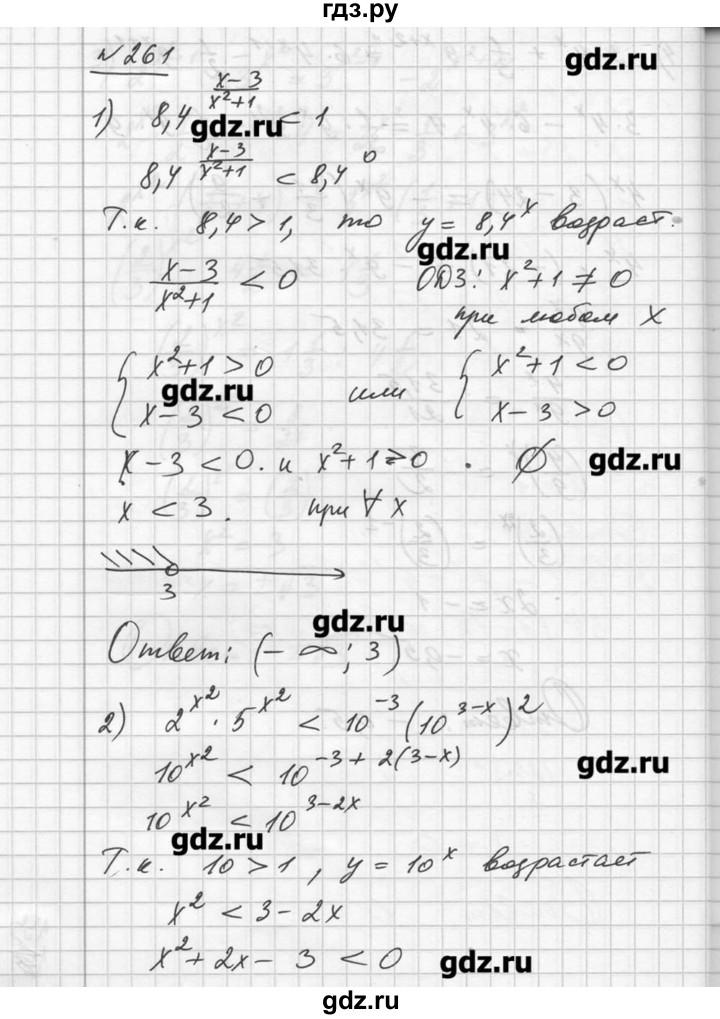 гдз.ру
№ 261
gdz.ru
1) 8,4^((x-3)/(x²+1)) < 1
gdz.ru
8,4^((x-3)/(x²+1)) < 8,4⁰
Т.к. 8,4 > 1, то y = 8,4ˣ возраст.
gdz.ru
(x-3)/(x²+1) < 0 ОДЗ: x²+1 ≠ 0
при любом x
{ x²+1 > 0 или { x²+1 < 0
gdz.ru
x-3 < 0 x-3 > 0
x-3 < 0. и x²+1 > 0 . ∅ gdz.ru
x < 3. при ∀ x
3
gdz.ru
Ответ: (-∞; 3)
2) 2^(x²) · 5^(x²) < 10⁻³ (10^(3-x))²
10^(x²) < 10^(-3+2(3-x))
gdz.ru
10^(x²) < 10^(3-2x)
gdz.ru
Т.к. 10 > 1, y = 10ˣ возрастает
x² < 3-2x
x² + 2x - 3 < 0 gdz.ru
gdz.ru